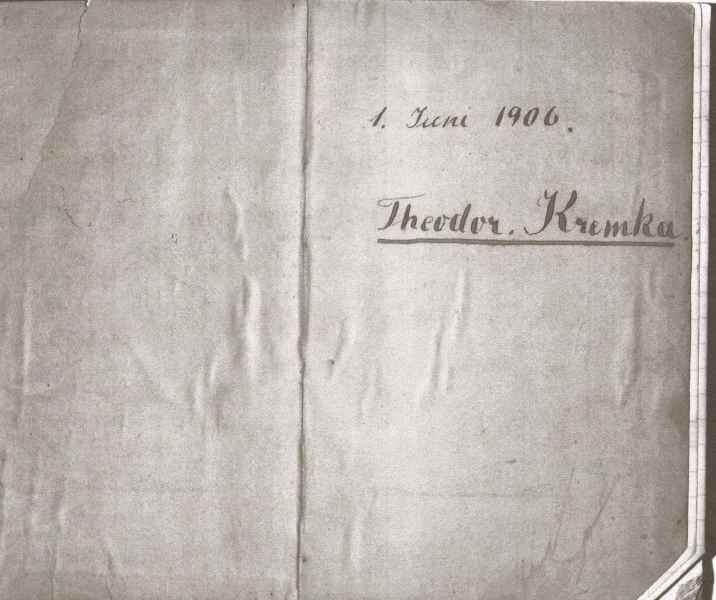 1. Juni 1906.
Theodor. Kremka.